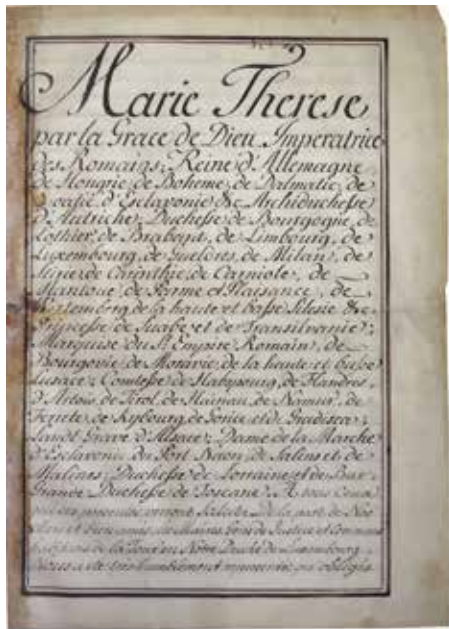 Marie Therese
par la Grace de Dieu Imperatrice
des Romains; Reine d'Allemagne,
de Hongrie, de Boheme, de Dalmatie, de
Croatie, d'Esclavonie &c. Archiduchesse
d'Autriche; Duchesse de Bourgogne, de
Lothier, de Brabant, de Limbourg, de
Luxembourg, de Gueldres, de Milan, de
Stirie, de Carinthie, de Carniole, de
Mantoue, de Parme et Plaisance, de
Wirtemberg, de la haute et basse Silesie &c.
Princesse de Suabe, et de Transilvanie;
Marquise du St. Empire Romain, de
Bourgovie, de Moravie, de la haute et basse
Lusace; Comtesse de Habspourg, de Flandres,
d'Artois, de Tirol, de Hainau, de Namur, de
Ferrete, de Kybourg, de Gorice, et de Gradisca;
Landtgrave d'Alsace; Dame de la Marche
d'Esclavonie, du Port Naon, de Salins et de
Malines; Duchesse de Lorraine et de Bar,
Grande Duchesse de Toscane; A tous Ceux
qui ces presentes verront Salut. De la part de Nos
chers et bien amés, les Mairs, Gens de Justice et Commun
de la en Notre Duché de Luxembourg
Nous a eté tres humblement remontré,